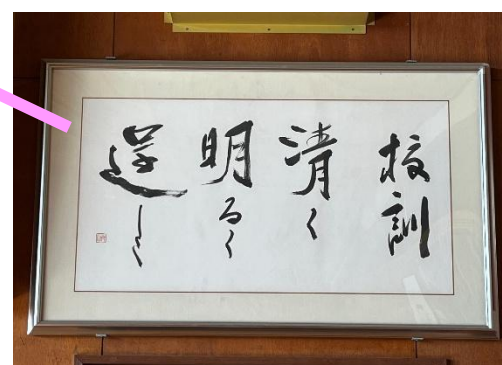 校訓
清く
明るく
逞しく